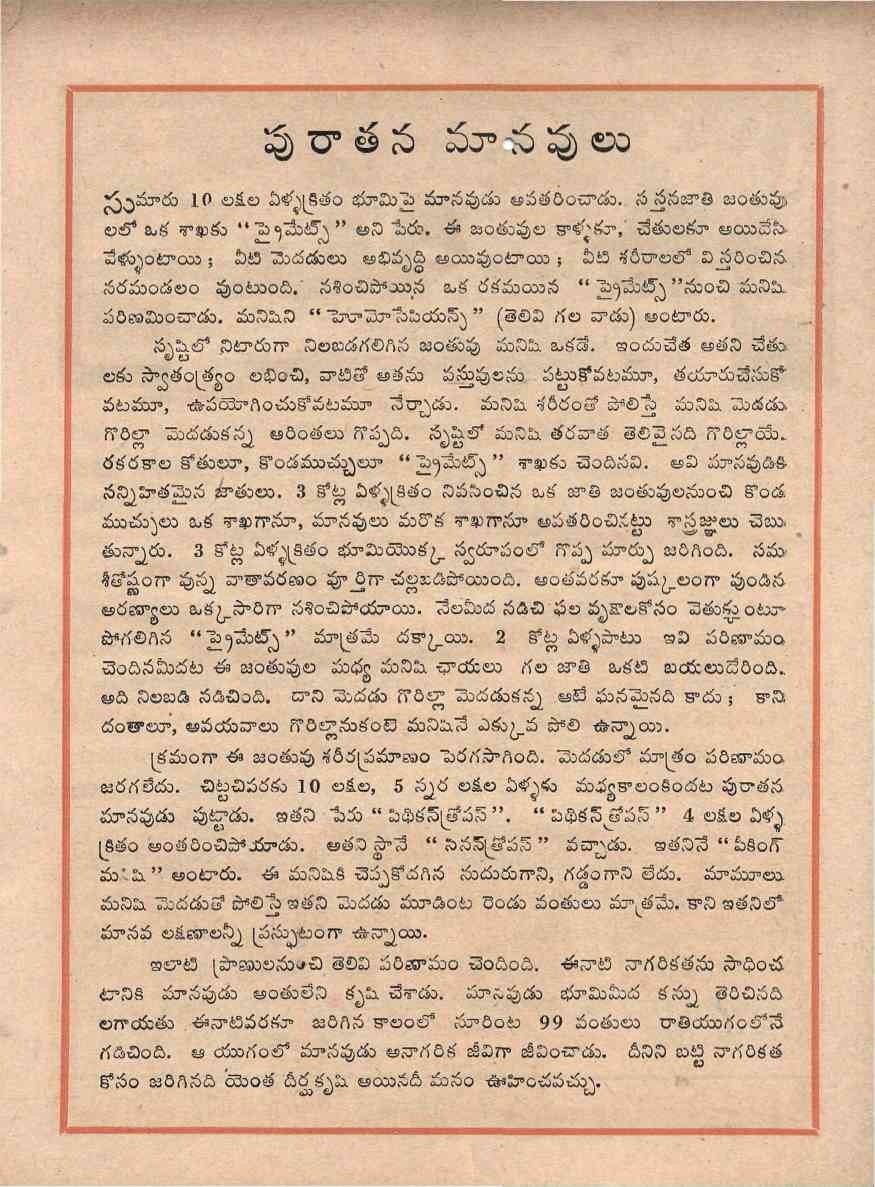 పురాతన మానవులు
సుమారు 10 లక్షల ఏళ్ళక్రితం భూమిపై మానవుడు అవతరించాడు. సస్తనజాతి జంతువు
లలో ఒక శాఖకు “ప్రైమేట్స్” అని పేరు. ఈ జంతువుల కాళ్ళకూ, చేతులకూ అయిదేసి
వేళ్ళుంటాయి; వీటి మెదడులు అభివృద్ధి అయివుంటాయి; వీటి శరీరాలలో విస్తరించిన
నరమండలం వుంటుంది. నశించిపోయిన ఒక రకమయిన “ప్రైమేట్స్”నుంచి మనిషి
పరిణమించాడు. మనిషిని “హెూమోసేపియన్స్” (తెలివి గల వాడు) అంటారు.
సృష్టిలో నిటారుగా నిలబడగలిగిన జంతువు మనిషి ఒకడే. ఇందుచేత అతని చేతు
లకు స్వాతంత్ర్యం లభించి, వాటితో అతను వస్తువులను పట్టుకోవటమూ, తయారుచేసుకో
వటమూ, ఉపయోగించుకోవటమూ నేర్చాడు. మనిషి శరీరంతో పోలిస్తే మనిషి మెదడు
గొరిల్లా మెదడుకన్న ఆరింతలు గొప్పది. సృష్టిలో మనిషి తరవాత తెలివైనది గొరిల్లాయే.
రకరకాల కోతులూ, కొండముచ్చులూ “ప్రైమేట్స్” శాఖకు చెందినవి. అవి మానవుడికి
సన్నిహితమైన జాతులు. 3 కోట్ల ఏళ్ళక్రితం నివసించిన ఒక జాతి జంతువులనుంచి కొండ
ముచ్చులు ఒక శాఖగానూ, మానవులు మరొక శాఖగానూ అవతరించినట్టు శాస్త్రజ్ఞులు చెబు
తున్నారు. 3 కోట్ల ఏళ్ళక్రితం భూమియొక్క స్వరూపంలో గొప్ప మార్పు జరిగింది. సమ
శీతోష్ణంగా వున్న వాతావరణం పూర్తిగా చల్లబడిపోయింది. అంతవరకూ పుష్కలంగా వుండిన
అరణ్యాలు ఒక్కసారిగా నశించిపోయాయి. నేలమీద నడిచి ఫల వృక్షాలకోసం వెతుక్కుంటూ
పోగలిగిన “ప్రైమేట్స్” మాత్రమే దక్కాయి. 2 కోట్ల ఏళ్ళపాటు ఇవి పరిణామం
చెందినమీదట ఈ జంతువుల మధ్య మనిషి ఛాయలు గల జాతి ఒకటి బయలుదేరింది.
అది నిలబడి నడిచింది. దాని మెదడు గొరిల్లా మెదడుకన్న ఆటే ఘనమైనది కాదు; కాని
దంతాలూ, అవయవాలు గొరిల్లానుకంటె మనిషినే ఎక్కువ పోలి ఉన్నాయి.
క్రమంగా ఈ జంతువు శరీరప్రమాణం పెరగసాగింది. మెదడులో మాత్రం పరిణామం
జరగలేదు. చిట్టచివరకు 10 లక్షల, 5 న్నర లక్షల ఏళ్ళకు మధ్యకాలంకిందట పురాతన
మానవుడు పుట్టాడు. ఇతని పేరు “పిథికన్‌త్రోపస్”. “పిథికన్‌త్రోపస్” 4 లక్షల ఏళ్ళ
క్రితం అంతరించిపోయాడు. అతని స్థానే “సినన్‌త్రోపస్” వచ్చాడు. ఇతనినే “పీకింగ్
మనిషి” అంటారు. ఈ మనిషికి చెప్పకోదగిన నుదురుగాని, గడ్డంగాని లేదు. మామూలు
మనిషి మెదడుతో పోలిస్తే ఇతని మెదడు మూడింట రెండు వంతులు మాత్రమే. కాని ఇతనిలో
మానవ లక్షణాలన్నీ ప్రస్ఫుటంగా ఉన్నాయి.
ఇలాటి ప్రాణులనుంచి తెలివి పరిణామం చెందింది. ఈనాటి నాగరికతను సాధించ
టానికి మానవుడు అంతులేని కృషి చేశాడు. మానవుడు భూమిమీద కన్ను తెరిచినది
లగాయతు ఈనాటివరకూ జరిగిన కాలంలో నూరింట 99 వంతులు రాతియుగంలోనే
గడిచింది. ఆ యుగంలో మానవుడు అనాగరిక జీవిగా జీవించాడు. దీనిని బట్టి నాగరికత
కోసం జరిగినది యెంత దీర్ఘకృషి అయినదీ మనం ఊహించవచ్చు.